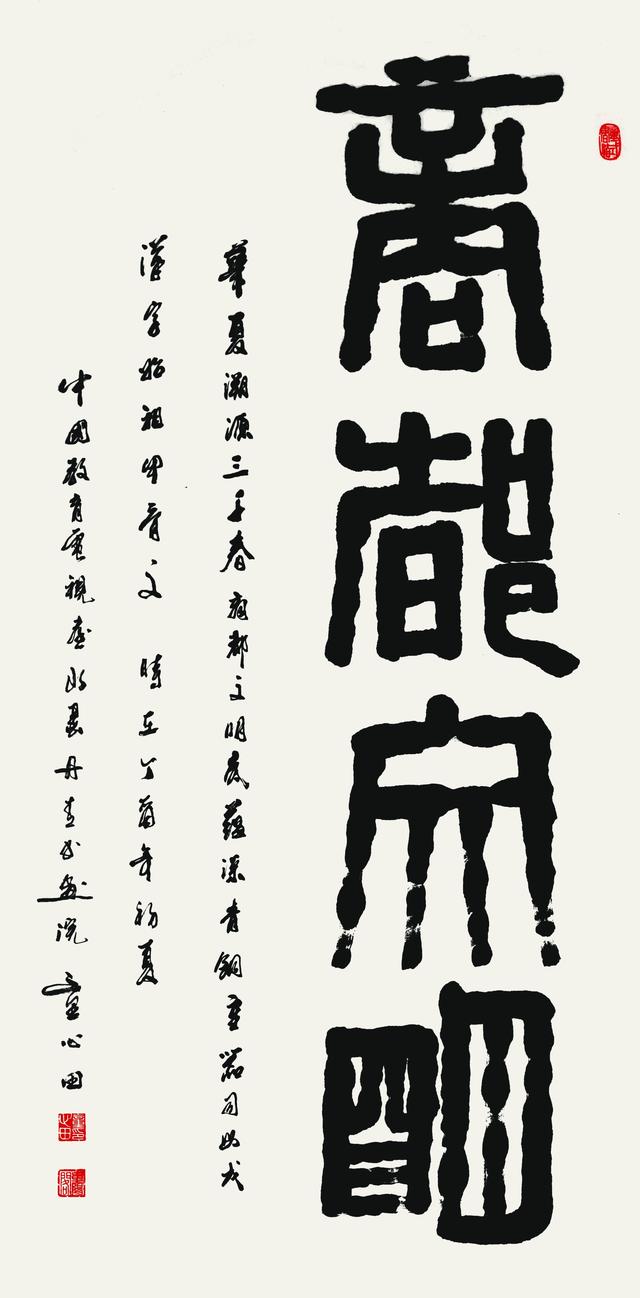 商都文明
華夏溯源三千春商都文明底蘊深青銅重器司母戊
漢字始祖甲骨文 時在丁酉年初夏
中國教育電視臺水墨丹青書畫院 童心田